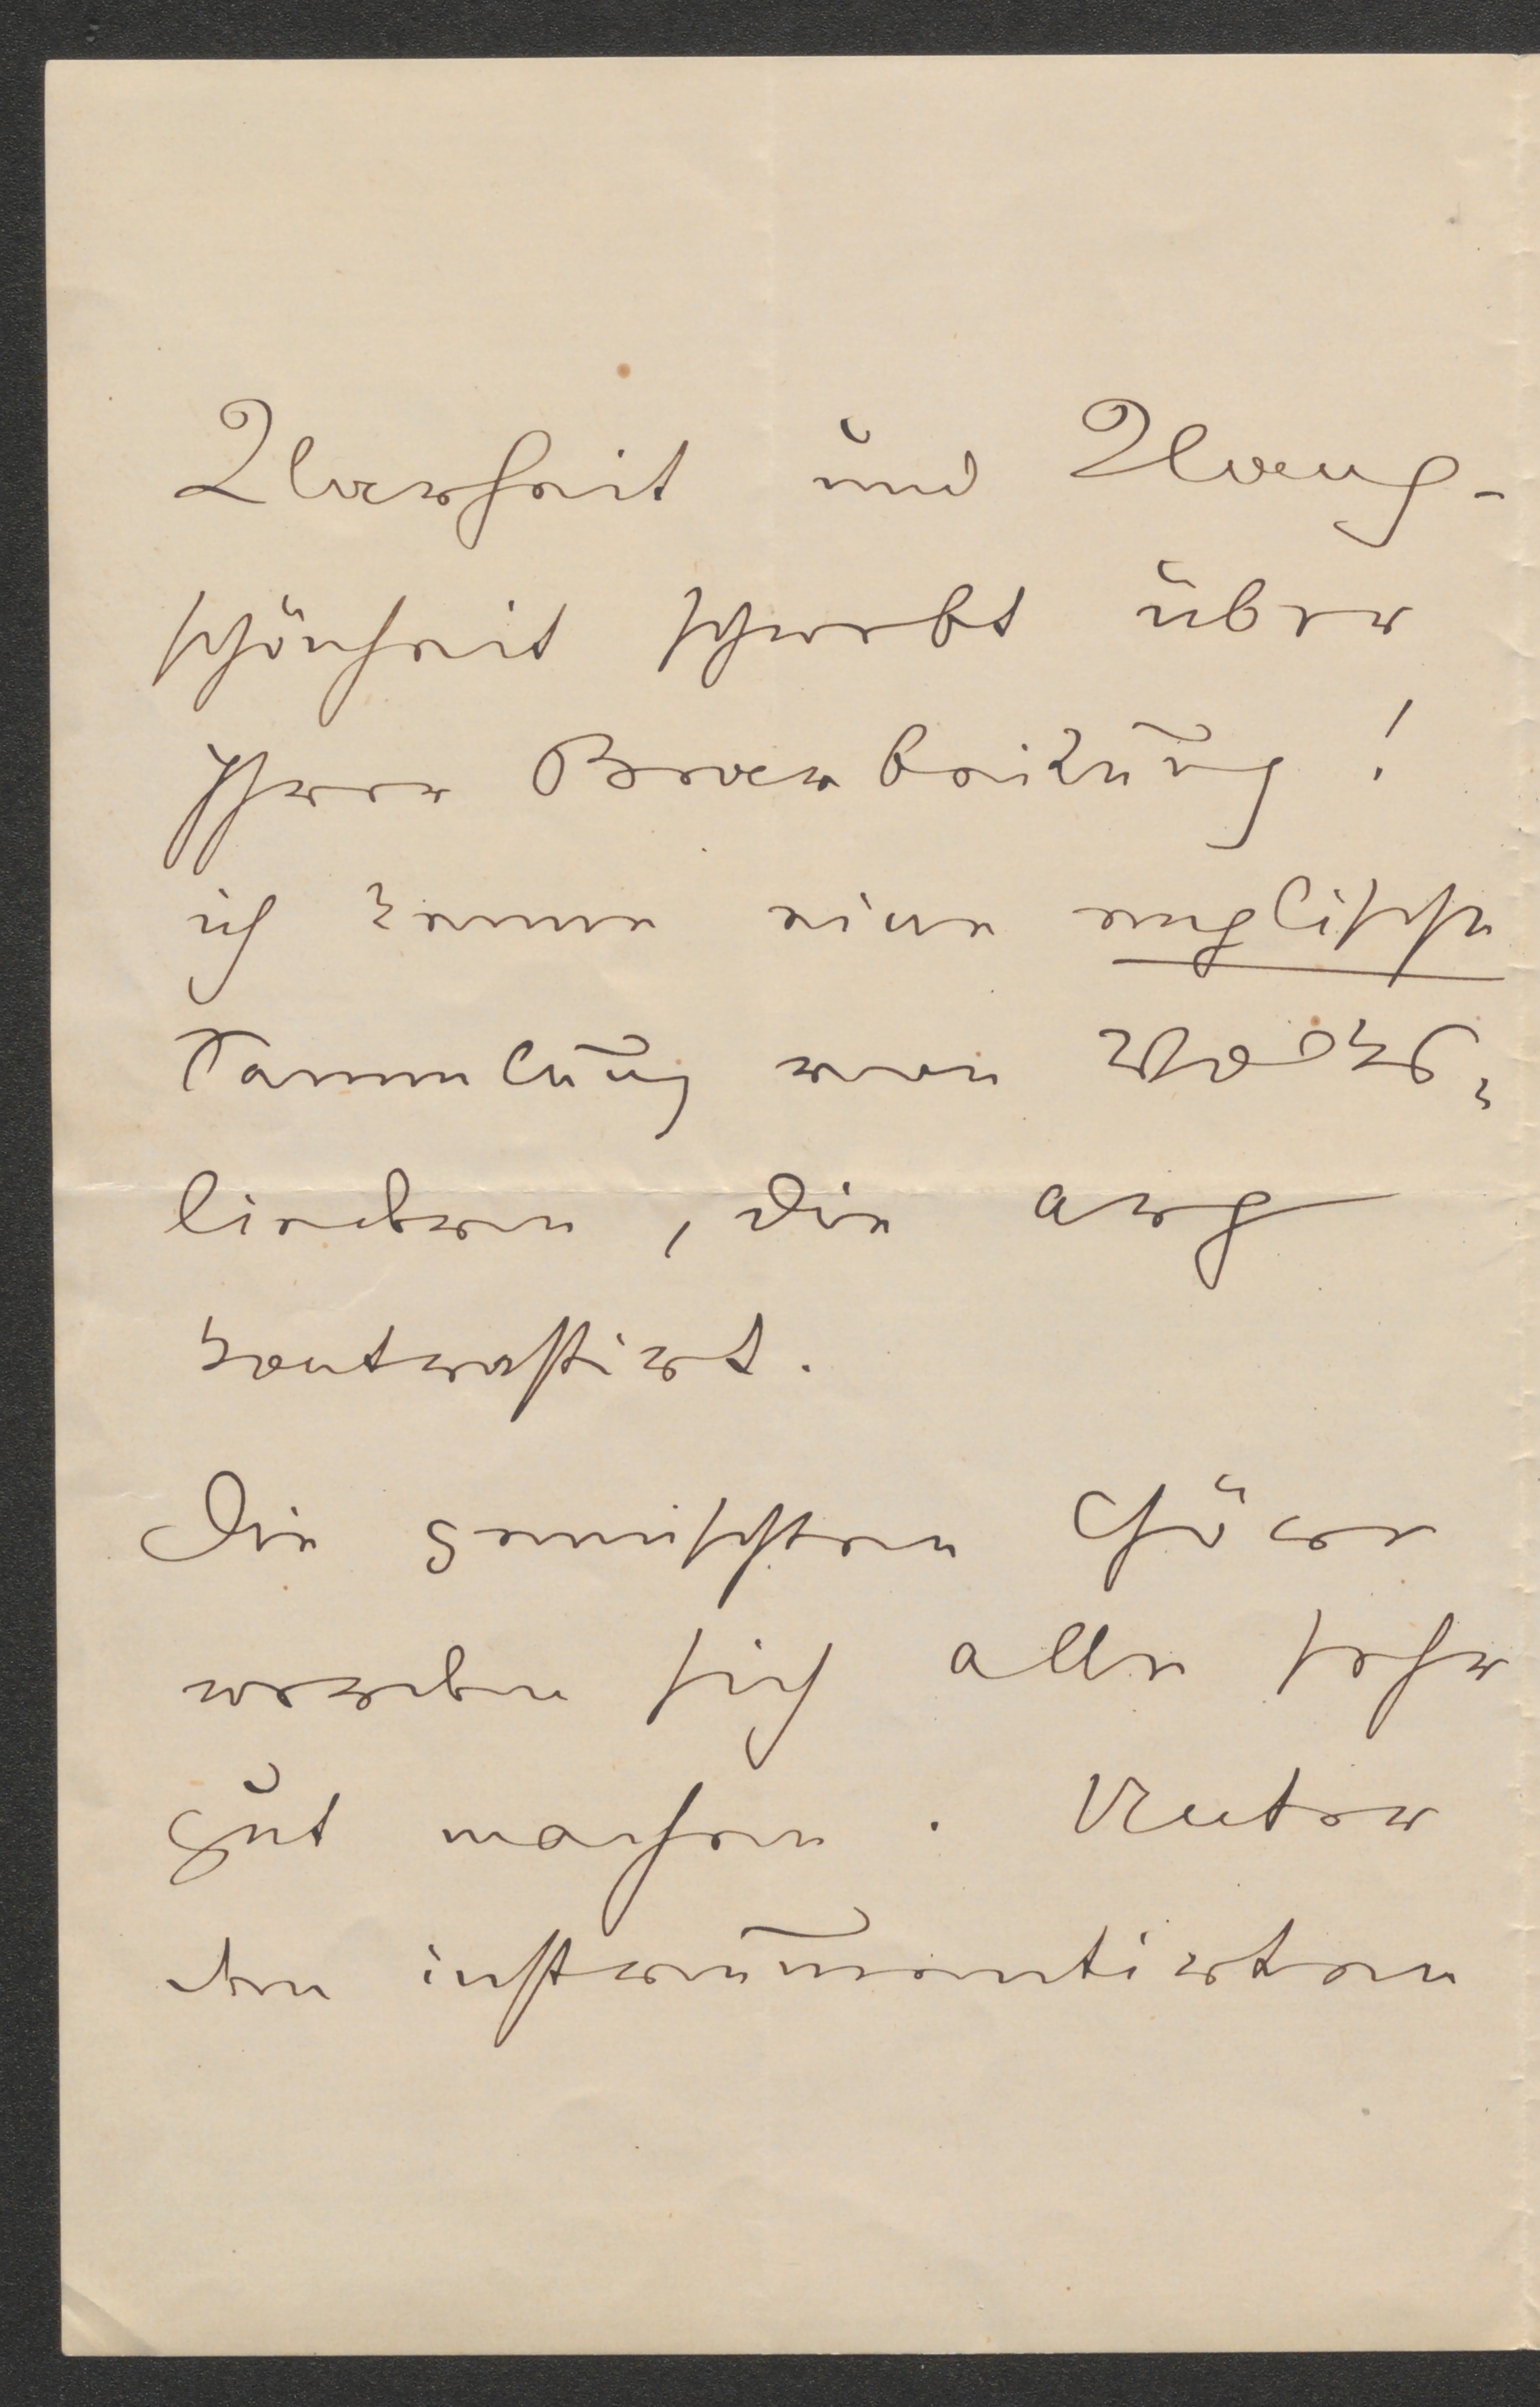 Klarheit und Klang-
schönheit schwebt über
Ihrer Bearbeitung!
ich kenne eine englische
Sammlung von Volks-
liedern, die arg
kontrastirt.
Die gemischten Chöre
werden sich alle sehr
gut machen. Unter
den instrumentirten